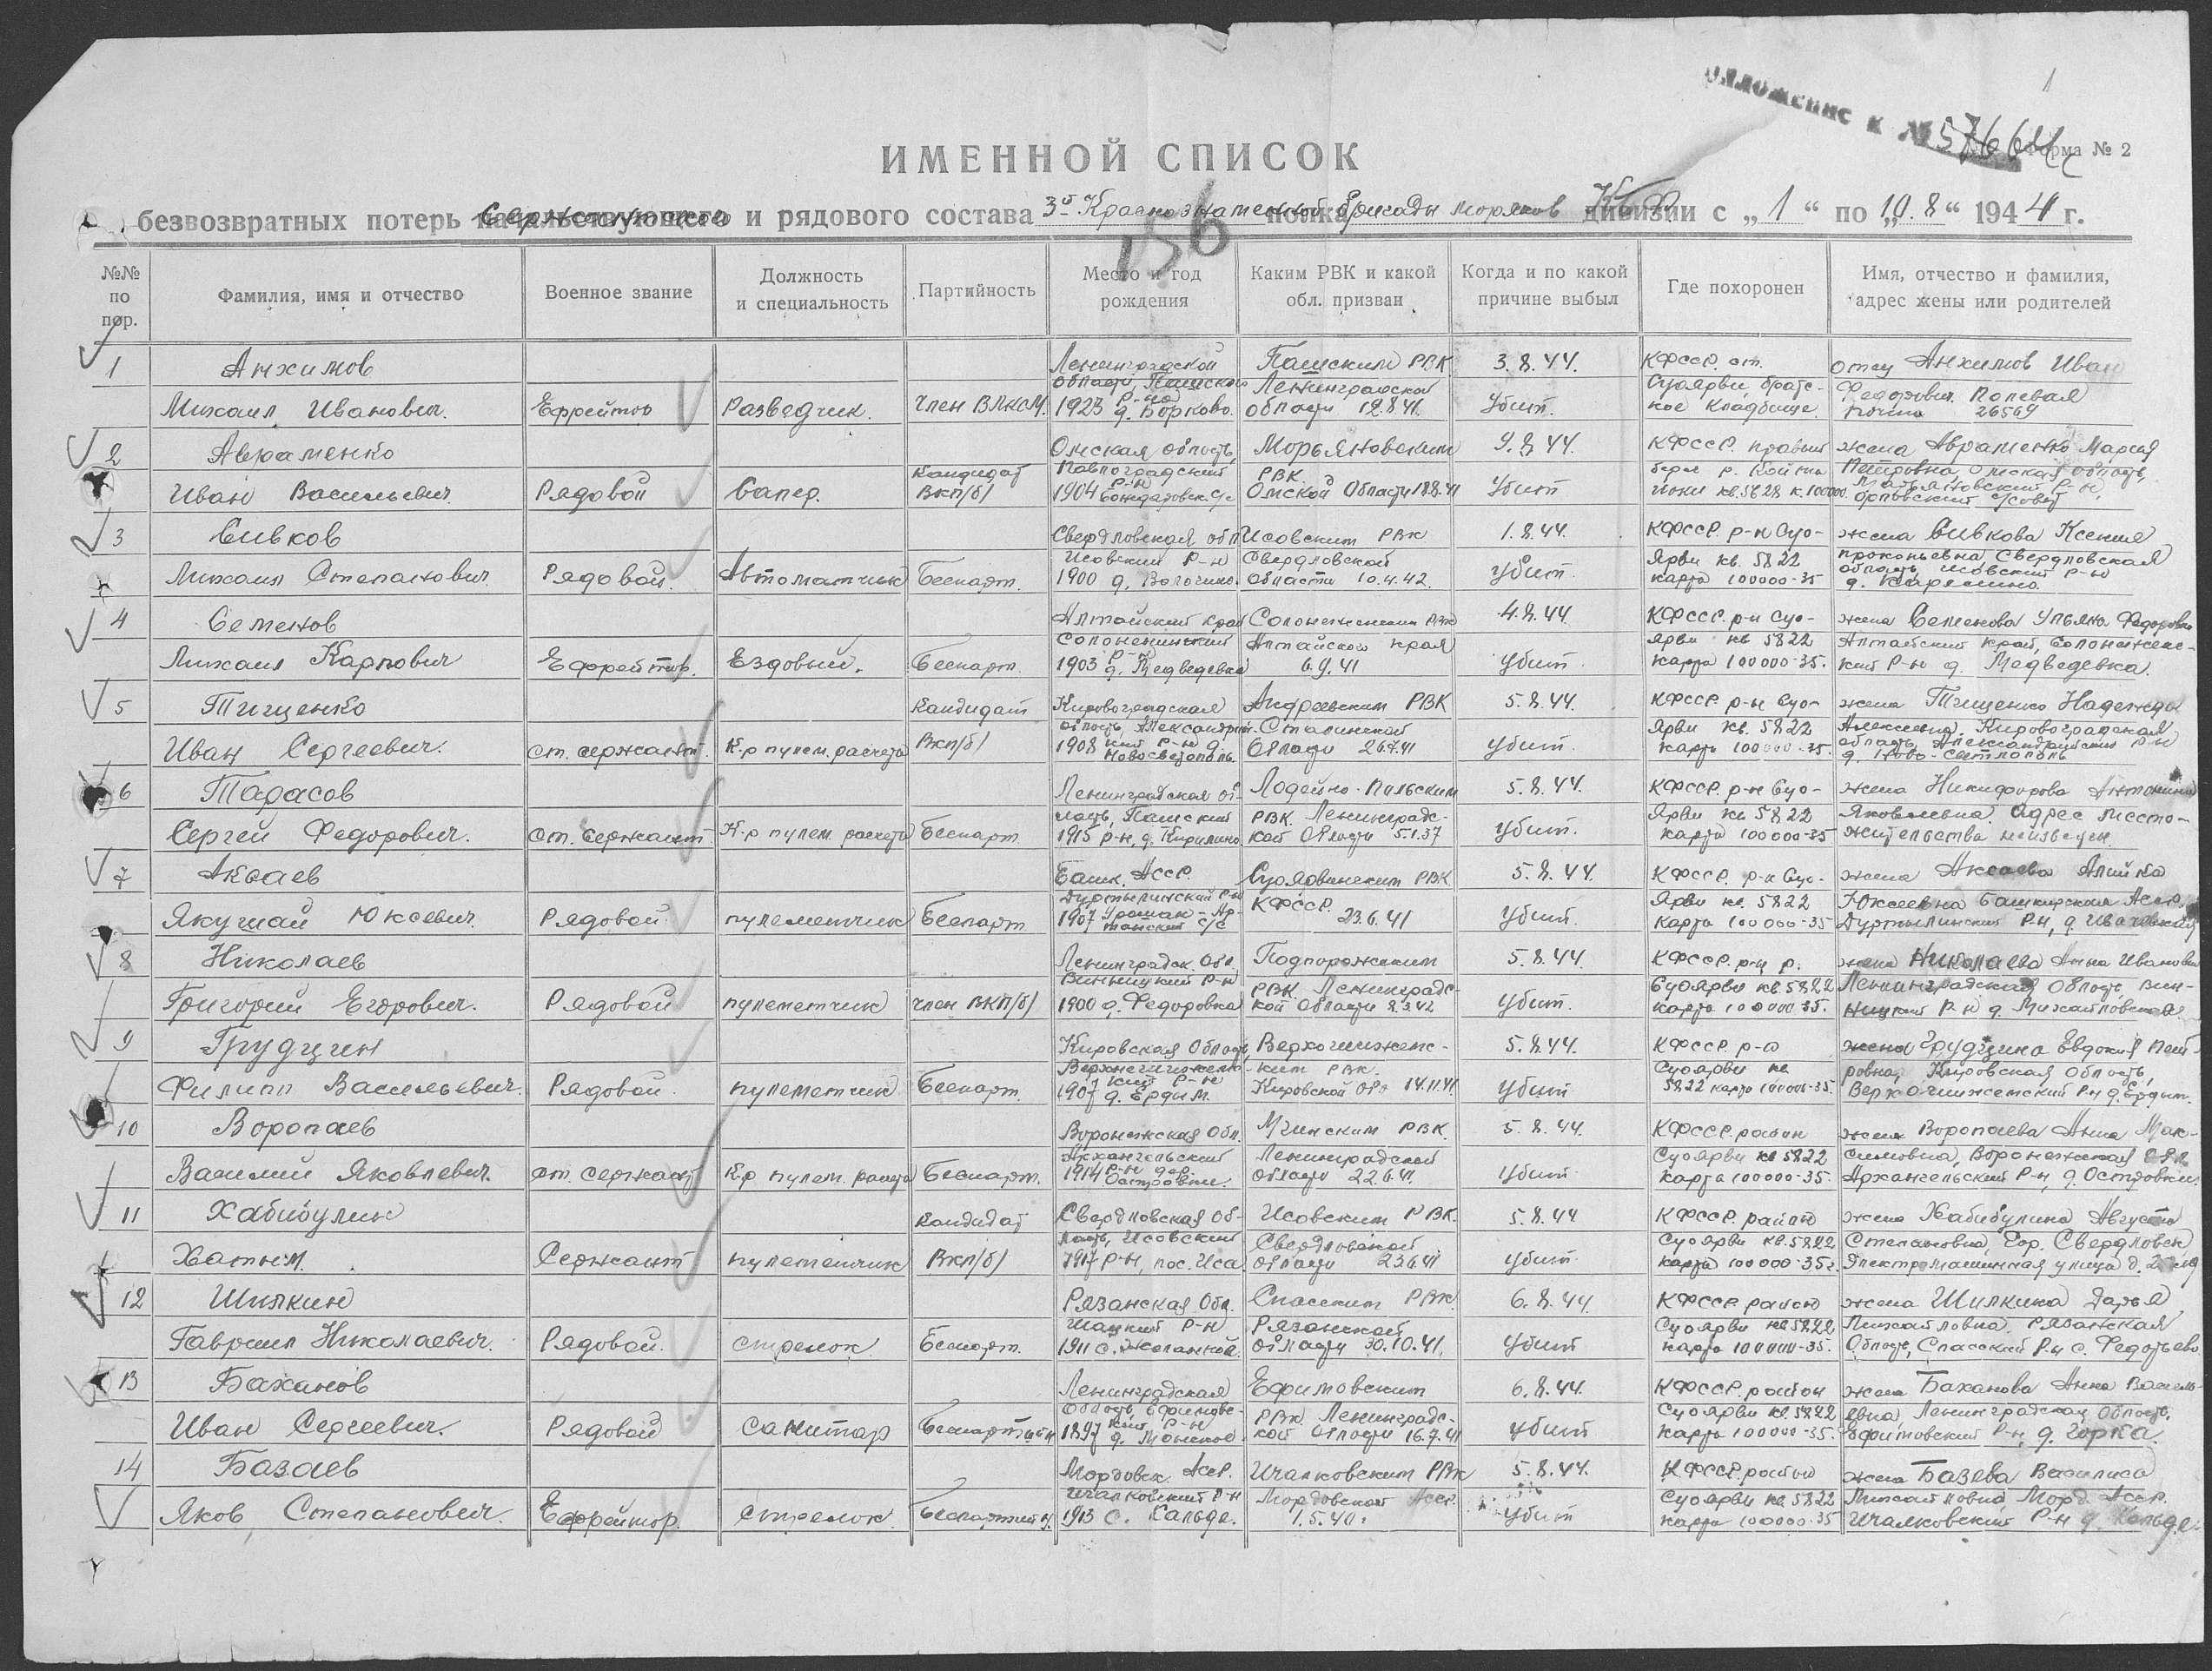 1
Приложение к № 57664с
Форма № 2
ИМЕННОЙ СПИСОК
безвозвратных потерь сержантского и рядового состава 3й Краснознаменной бригады моряков дивизии с „1“ по „10.8“ 1944 г.
156
№№ по пор.
Фамилия, имя и отчество
Военное звание
Должность и специальность
Партийность
Место и год рождения
Каким РВК и какой обл. призван
Когда и по какой причине выбыл
Где похоронен
Имя, отчество и фамилия, адрес жены или родителей
1 Анхимов Ленинградской Пашским РВК 3.8.44. КФССР. ст. отец Анхимов Иван
области, Пашской р-на Ленинградской Суоярви братс- Федорович Полевая
Михаил Иванович. Ефрейтор Разведчик. член ВЛКСМ. 1923 д. Борково. области 12.8.41. Убит. кое кладбище. почта 26569
2 Авраменко Омская область, Морьяновским 9.8.44. КФССР. правый жена Авраменко Мария
Кандидат Павлоградский р-н РВК. берег р. Петровна Омская область,
Иван Васильевич. Рядовой Сапер. ВКП/б/ 1904 с/с Омской области 18.8.41 Убит кв. 5628 к. 100000. р-н, Орловский с/совет
3 Сивков Свердловская обл. Исовским РВК 1.8.44. КФССР. р-н Суо- жена Сивкова Ксения
Исовский р-н Свердловской ярви кв. 5822 Прокопьевна, Свердловская
Михаил Степанович. Рядовой. Автоматчик Беспарт. 1900 д. области 10.4.42. Убит. карта 100000-35 область, Исовский р-н д. Карелино.
4 Семенов Алтайский край Солонешенским РВК 4.8.44. КФССР. р-н Суо- жена Семенова Ульяна Федоровна
р-н Алтайского края ярви кв 5822 Алтайский край, Солонешенс-
Михаил Карпович Ефрейтор. Ездовый. Беспарт. 1903 д. Медведевка 6.9.41 Убит. карта 100000-35. кий р-н д. Медведевка.
5 Тищенко Кандидат Кировоградская Андреевским РВК 5.8.44. КФССР. р-н Суо- жена Тищенко Надежда
область, Александрий- Сталинской ярви кв. 5822 Алексеевна, Кировоградская
Иван Сергеевич. ст. сержант К-р пулем. расчета ВКП/б/ 1908 кий р-н д. Новосветополь. области 26.7.41 Убит карта 100000-35. область, р-н д. Ново-Светлополь
6 Тарасов Ленинградская об- Лодейно-Польским 5.8.44. КФССР. р-н Суо- жена Никифорова Антонина
ласть, Пашский РВК. Ленинградс- ярви кв 5822 Яковлевна. Адрес место-
Сергей Федорович. ст. сержант К-р пулем. расчета Беспарт. 1915 р-н, д. Кирилино. кой области 5.1.37 Убит. карта 100000-35 жительства неизвестен.
7 Аксаев Башк. АССР. Суоярвинским РВК 5.8.44. КФССР. р-н Суо- жена Аксаева
р-н КФССР. ярви кв. 5822 Юксеевна Башкирская АССР.
Якушай Юксевич. Рядовой. пулеметчик Беспарт. 1907 с/с 23.6.41 Убит. карта 100000-35 р-н, д.
8 Николаев Ленинградск. обл. Подпорожским 5.8.44. КФССР. р-н р. жена Николаева Анна Ивановна
Винницкий р-н РВК. Ленинградс- Суоярви кв 5822 Ленинградская область, Вин-
Григорий Егорович. Рядовой пулеметчик член ВКП/б/ 1900 д. Федоровка кой области 2.3.42 Убит. карта 100000-35. ницкий р-н д. Михайловская
9 Грудцин Кировская область, Верхошижемс- 5.8.44. КФССР. р-н жена Грудцина Евдокия Пет-
кий р-н ким РВК. Суоярви кв ровна, Кировская область,
Филипп Васильевич. Рядовой. пулеметчик Беспарт. 1907 д. Ердым. Кировской обл 14.11.41. Убит 5822 карта 100000-35. Верхошижемский р-н д. Ердым.
10 Воропаев Воронежская обл. Мгинским РВК. 5.8.44. КФССР. район жена Воропаева Анна Мак-
Архангельский Ленинградской Суоярви кв 5822 симовна, Воронежская обл.
Василий Яковлевич. ст. сержант К-р пулем. расчета Беспарт. 1914 р-н дер. Островки. области 22.6.41. Убит карта 100000-35. Архангельский р-н, д. Островки.
11 Хабибулин Кандидат Свердловская об- Исовским РВК. 5.8.44 КФССР. район жена Хабибулина Августа
ласть, Исовский Свердловской Суоярви кв. 5822 Степановна, гор. Свердловск
Хатым. Сержант пулеметчик ВКП/б/ 1917 р-н, пос. Иса. области 23.6.41 Убит. карта 100000-35. Электромашинная улица д.
12 Шилкин Рязанская обл. Спасским РВК. 6.8.44. КФССР. район жена Шилкина Дарья
Шацкий р-н Рязанской Суоярви кв 5822 Михайловна. Рязанская
Гавриил Николаевич. Рядовой. стрелок Беспарт. 1911 с. области 30.10.41. Убит карта 100000-35. область, Спасский р-н с. Федотьево
13 Баханов Ленинградская Ефимовским 6.8.44. КФССР. район жена Баханова Анна Василь-
область, Ефимовс- РВК. Ленинградс- Суоярви кв. 5822 евна, Ленинградская область,
Иван Сергеевич. Рядовой санитар Беспартийн 1897 кий р-н д. кой области 16.7.41 Убит карта 100000-35. Ефимовский р-н, д. Горка.
14 Базаев Мордовск. АССР. Ичалковским РВК 5.8.44. КФССР. район жена Базева Василиса
Ичалковский р-н Мордовской АССР. Суоярви кв. 5822 Михайловна Морд. АССР.
Яков Степанович. Ефрейтор. стрелок. Беспартийн. 1913 с. Кальде. 1.5.40. Убит карта 100000-35 Ичалковский р-н д. Кальде.